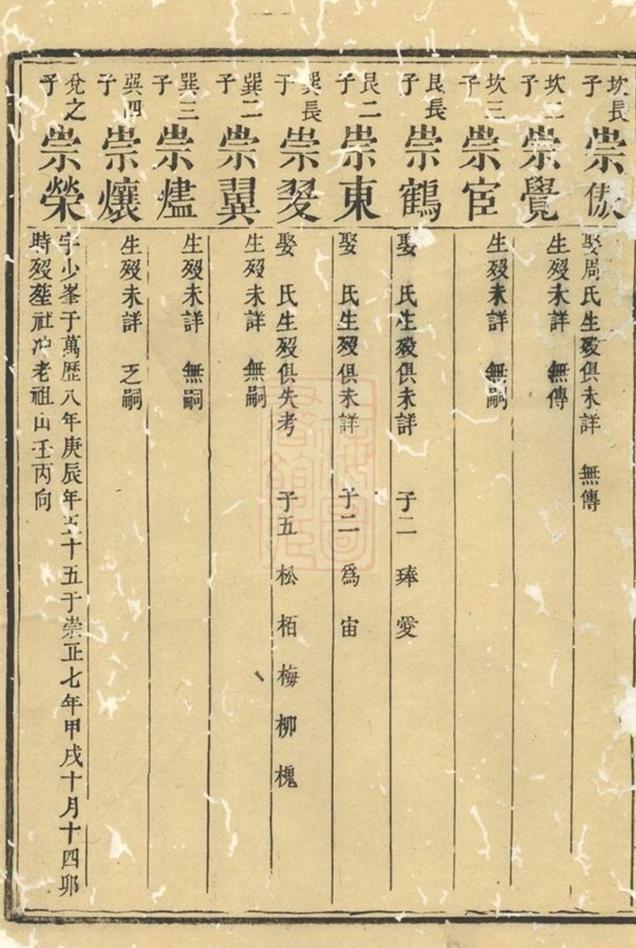 坎長子 崇倣 娶周氏生歿俱未詳 無傳
坎二子 崇覺 生歿未詳 無傳
坎三子 崇宦 生歿未詳 無嗣
艮長子 崇鶴 娶 氏生歿俱未詳 子二 琫 愛
艮二子 崇東 娶 氏生歿俱未詳 子二 為 宙
巽長子 崇 娶 氏生歿俱失考 子五 松 栢 梅 柳 槐
巽二子 崇翼 生歿未詳 無嗣
巽三子 崇爐 生歿未詳 無嗣
巽四子 崇爙 生歿未詳 乏嗣
兌之子 崇榮 字少峯于萬歷八年庚辰年五十五于崇正七年甲戌十月十四卯
時歿塟祖冲老祖山壬丙向